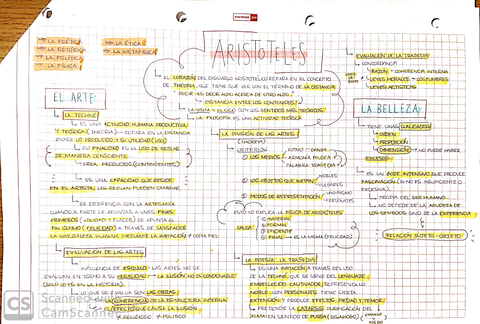 → LA POÉTICA
→ LA RETÓRICA
→ LA POLÍTICA
→ LA FÍSICA
→ LA ÉTICA
→ LA METAFÍSICA
ARISTÓTELES
EL CORAZÓN DEL DISCURSO ARISTOTÉLICO REPARA EN EL CONCEPTO
DE THEORIA, QUE TIENE QUE VER CON EL TÉRMINO DE LA DISTANCIA
DECIR ALGO ACERCA DE OTRO ALGO
DISTANCIA ENTRE LOS CONTENIDOS
LA VISTA Y EL OÍDO SON LOS SENTIDOS MÁS TEÓRICOS
LA FILOSOFÍA ES UNA ACTIVIDAD TEÓRICA
EL ARTE
LA TECHNÉ
ES UNA ACTIVIDAD HUMANA PRODUCTIVA
Y TEÓRICA (THEORIA) → REPARA EN LA DISTANCIA
ENTRE LO PRODUCIDO Y SU UTILIDAD (USO)
SU FINALIDAD ES SU USO DE REGLAS
DE MANERA CONSCIENTE
CREA PRODUCTOS (CONTINGENTES)
ES UNA CAPACIDAD QUE RESIDE
EN EL ARTISTA, LAS REGLAS PUEDEN CAMBIAR
SE DIFERENCIA CON LA ARTESANÍA
CUANDO A PARTE DE APUNTAR A UNOS FINES
PRIMEROS (UTILIDAD Y FUNCIÓN) SE APUNTA AL
FIN ÚLTIMO (FELICIDAD) A TRAVÉS DE SATISFACER
LA NATURALEZA HUMANA MEDIANTE LA IMITACIÓN Y COPIA FIEL
EVALUACIÓN DE LAS ARTES
INFLUENCIA DE ESQUILO: LAS ARTES NO SE
EVALÚAN EN TORNO A SU VERACIDAD → LA ILUSIÓN NO ES CONDENABLE
(SÓLO LO ES EN LA HISTORIA)
LO QUE SE EVALÚA SON LAS OBRAS
COHERENCIA DE LA ESTRUCTURA INTERNA
EL EFECTO QUE CAUSA LA ILUSIÓN
RELIGIOSO Y POLÍTICO
LA DIVISIÓN DE LAS ARTES
CRITERIOS
① LOS MEDIOS
RITMO DANZA
ARMONÍA MÚSICA
PALABRA TRAGEDIA
② LOS OBJETOS QUE IMITAN
NOBLES
VULGARES
③ MODOS DE REPRESENTACIÓN
ESTO LO EXPLICA LA FÍSICA DE ARISTÓTELES
CAUSA
① MATERIAL
② FORMAL
③ EFICIENTE
④ FINAL → ES LA MISMA (FELICIDAD)
LA POESÍA: LA TRAGEDIA
ES UNA IMITACIÓN A TRAVÉS DEL USO
DE LA TECHNÉ, QUE SE SIRVE DEL LENGUAJE
EMBELLECIDO CAUTIVADOR, REPRESENTA LO
NOBLE CON PERSONAJES, TIENE CIERTA
EXTENSIÓN Y PRODUCE EFECTOS: PIEDAD Y TEMOR
PRETENDE LA CATARSIS: PURIFICACIÓN DEL
ALMA EN SENTIDO DE PURGA
EVALUACIÓN DE LA TRAGEDIA
CONCORDANCIA
RAZÓN → COHERENCIA INTERNA
LEYES MORALES → COSTUMBRES
LEYES ARTÍSTICAS
LA BELLEZA
TIENE UNAS CUALIDADES
ORDEN
PROPORCIÓN
DIMENSIÓN → NO PUEDE HABER
EXCESOS
ES UN GOCE INTENSIVO QUE PRODUCE
FASCINACIÓN (SINO ES INSUFICIENTE O
EXCESIVA)
PROPIA DEL SER HUMANO
NO DEPENDE DE LA AGUDEZA DE
LOS SENTIDOS SINO DE LA EXPERIENCIA
RELACIÓN SUJETO - OBJETO
CS
CamScanner